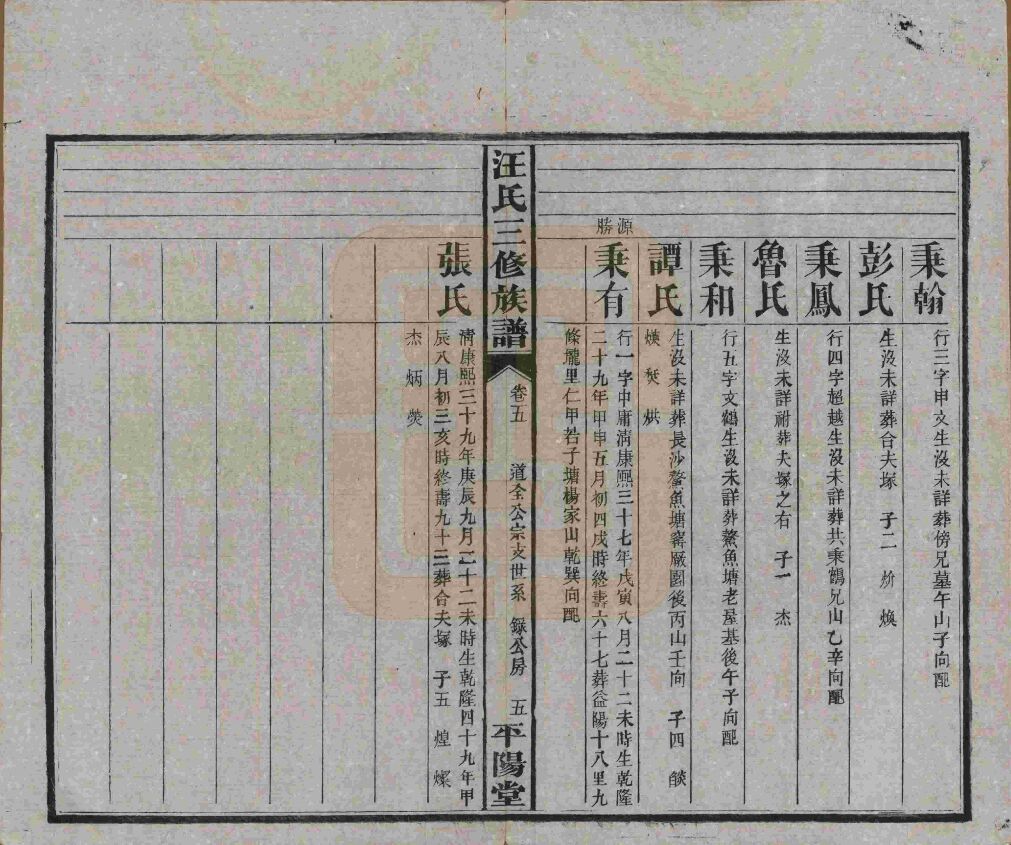 秉翰
行三字申文生沒未詳葬傍兄墓午山子向配
彭氏
生沒未詳葬合夫塚 子二 炌 煥
秉鳳
行四字超越生沒未詳葬共秉鶴兄山乙辛向配
魯氏
生沒未詳祔葬夫塚之右 子一 杰
秉和
行五字文鶴生沒未詳葬鰲魚塘老屋基後午子向配
譚氏
生沒未詳葬長沙鰲魚塘窰厰園後丙山壬向 子四 燄
煐 烘
源勝
秉有
行一字中庸清康熙三十七年戊寅八月二十二未時生乾隆
二十九年甲申五月初四戌時終壽六十七葬益陽十八里九
條壠里仁甲若子塘楊家山乾巽向配
汪氏三修族譜
卷五
道全公宗支世系 錄公房 五
平陽堂
張氏
清康熙三十九年庚辰九月二十二未時生乾隆四十九年甲
辰八月初三亥時終壽九十三葬合夫塚 子五 煌 燦
杰 炳 熒